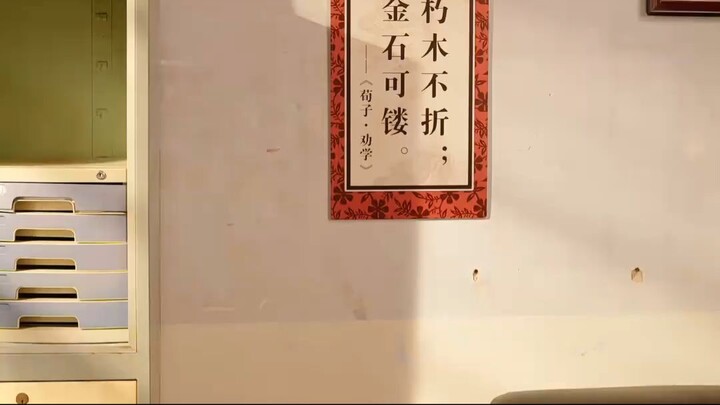 朽木不折；
金石可镂。
——《荀子·劝学》